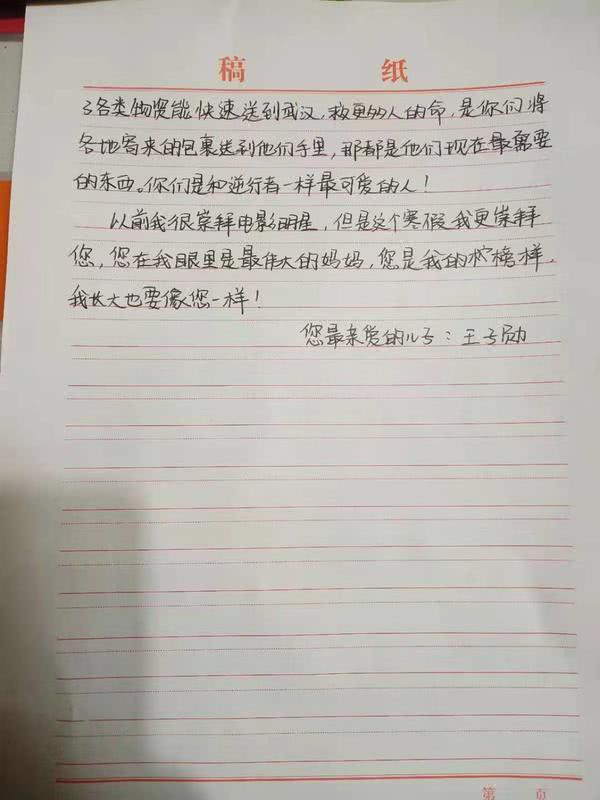 稿 纸
了各类物资能快速送到武汉,救更多人的命,是你们将
各地寄来的包裹送到他们手里,那都是他们现在最需要
的东西。你们是和逆行者一样最可爱的人!
以前我很崇拜电影明星,但是这个寒假我更崇拜
您,您在我眼里是最伟大的妈妈,您是我的榜样,
我长大也要像您一样!
您最亲爱的儿子:王子勋
第 页